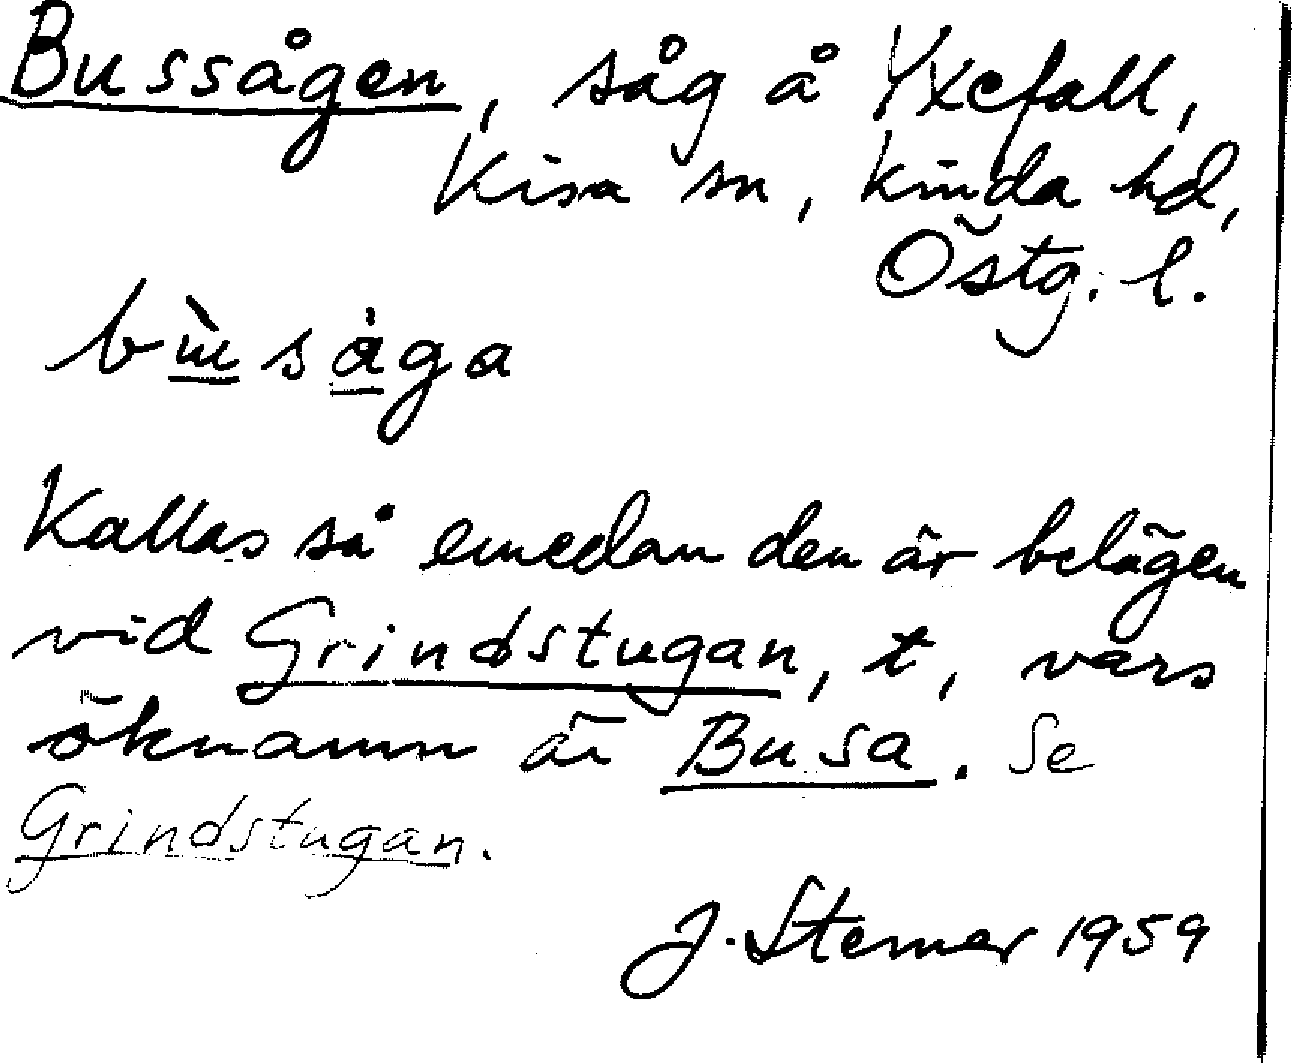 Bussågen, såg å Yxefall,
Kisa sn, Kinda hd,
Östg. l.
bùsåga
Kallas så emedan den är belägen
vid Grindstugan, t, vars
öknamn är Busa. Se
Grindstugan.
J. Sterner 1959